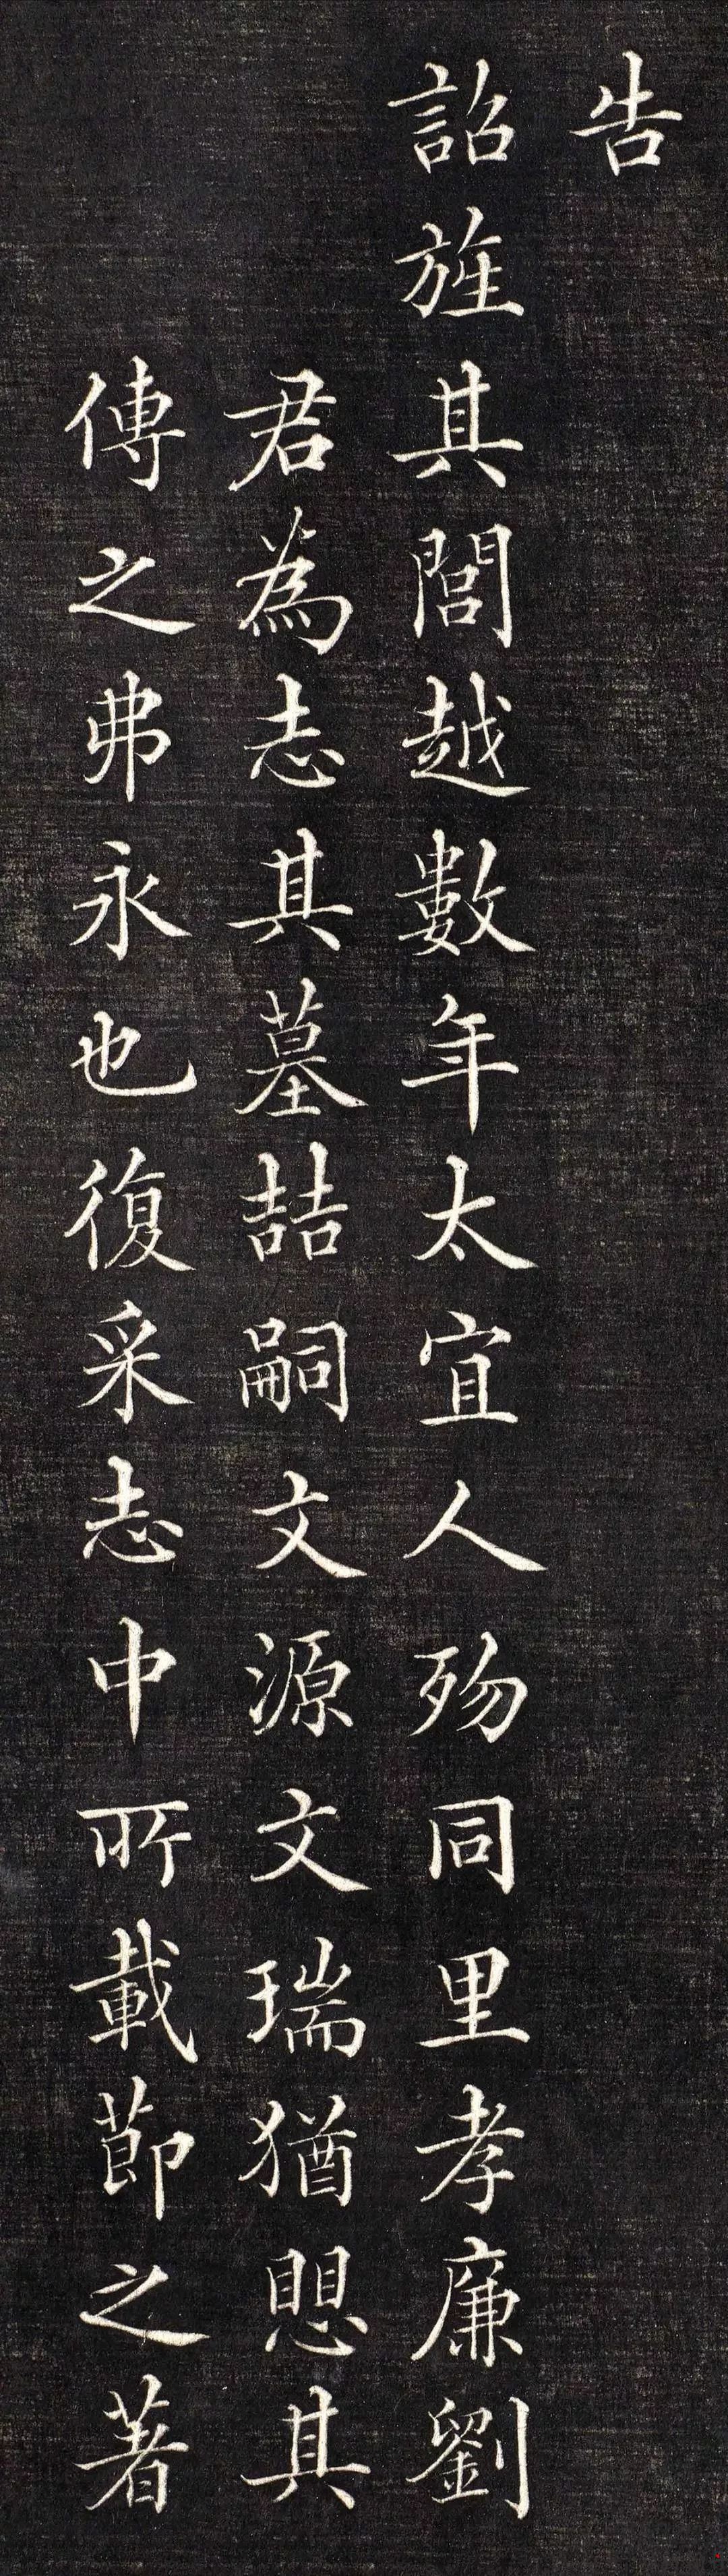 告
詔旌其閭越數年太宜人歿同里孝廉劉
君為志其墓喆嗣文源文瑞猶思其
傳之弗永也復采志中所載節之著